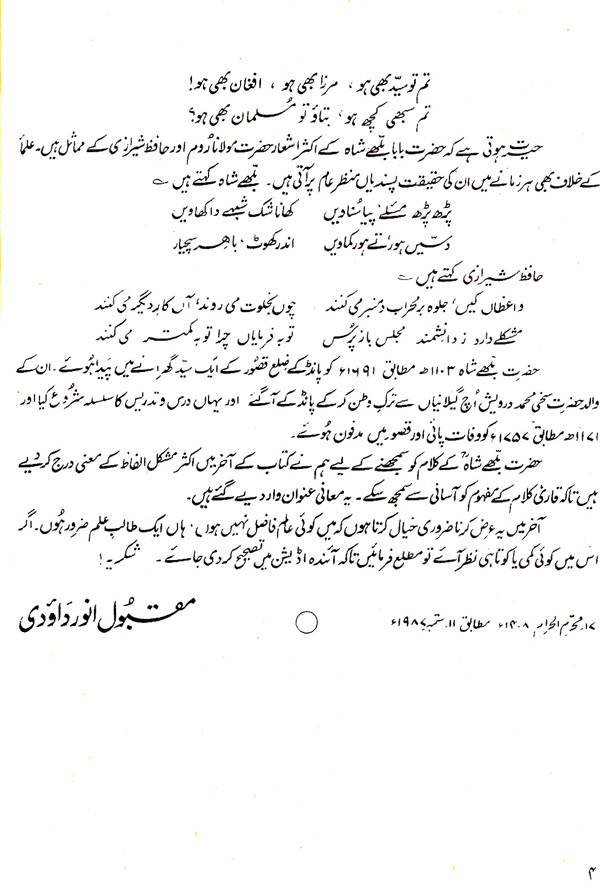 تم تو سیّد بھی ہو، مرزا بھی ہو، افغان بھی ہو!
تم سبھی کچھ ہو، بتاؤ تو مُسلمان بھی ہو؟
حیرت ہوتی ہے کہ حضرت بابا بلّھے شاہ کے اکثر اشعار حضرت مولانا رُوم اور حافظ شیرازی کے مماثل ہیں۔ علمأ
کے خلاف بھی ہر زمانے میں ان کی حقیقت پسندیاں منظرِ عام پر آتی ہیں۔ بلّھے شاہ کہتے ہیں ؎
پڑھ پڑھ مسئلے پیا سُناویں کھانا شک شبہے دا کھاویں
دسّیں ہور تے ہور کماویں اندر کھوٹ، باہر سچیار
حافظ شیرازی کہتے ہیں ؎
واعظاں کیں، جلوہ بر محراب و منبر می کنند چوں بخلوت می روند، آں کارِ دیگر می کنند
مشکلے دارد ز دانشمند مجلس باز پُرس توبہ فرمایاں چرا توبہ کمتر می کنند
حضرت بلّھے شاہ ۱۱۰۳ھ مطابق ۱۶۹۱ء کو پانڈ کے ضلع قصُور کے ایک سیّد گھرانے میں پیدا ہُوئے۔ ان کے
والد حضرت سخی محمد درویش اُچ گیلانیاں سے ترکِ وطن کر کے پانڈ کے آ گئے اور یہاں درس و تدریس کا سلسلہ شرُوع کیا اور
۱۱۷۱ھ مطابق ۱۷۵۷ء کو وفات پائی اور قصور میں مدفون ہُوئے۔
حضرت بلّھے شاہؒ کے کلام کو سمجھنے کے لیے ہم نے کتاب کے آخر میں اکثر مشکل الفاظ کے معنی درج کر دیے
ہیں تاکہ قاری کلام کے مفہوم کو آسانی سے سمجھ سکے۔ یہ معانی عنوان وار دیے گئے ہیں۔
آخر میں یہ عرض کرنا ضروری خیال کرتا ہوں کہ میں کوئی عالم فاضل نہیں ہوں، ہاں ایک طالبِ علم ضرور ہُوں۔ اگر
اس میں کوئی کمی یا کوتاہی نظر آئے تو مطلع فرمائیں تاکہ آئندہ اڈیشن میں تصحیح کر دی جائے۔ شکریہ!
۱۷ محرّم الحرام ۱۴۰۸ء مطابق ۱۱ ستمبر ۱۹۸۷ء
مقبُول انور داؤدی
۴